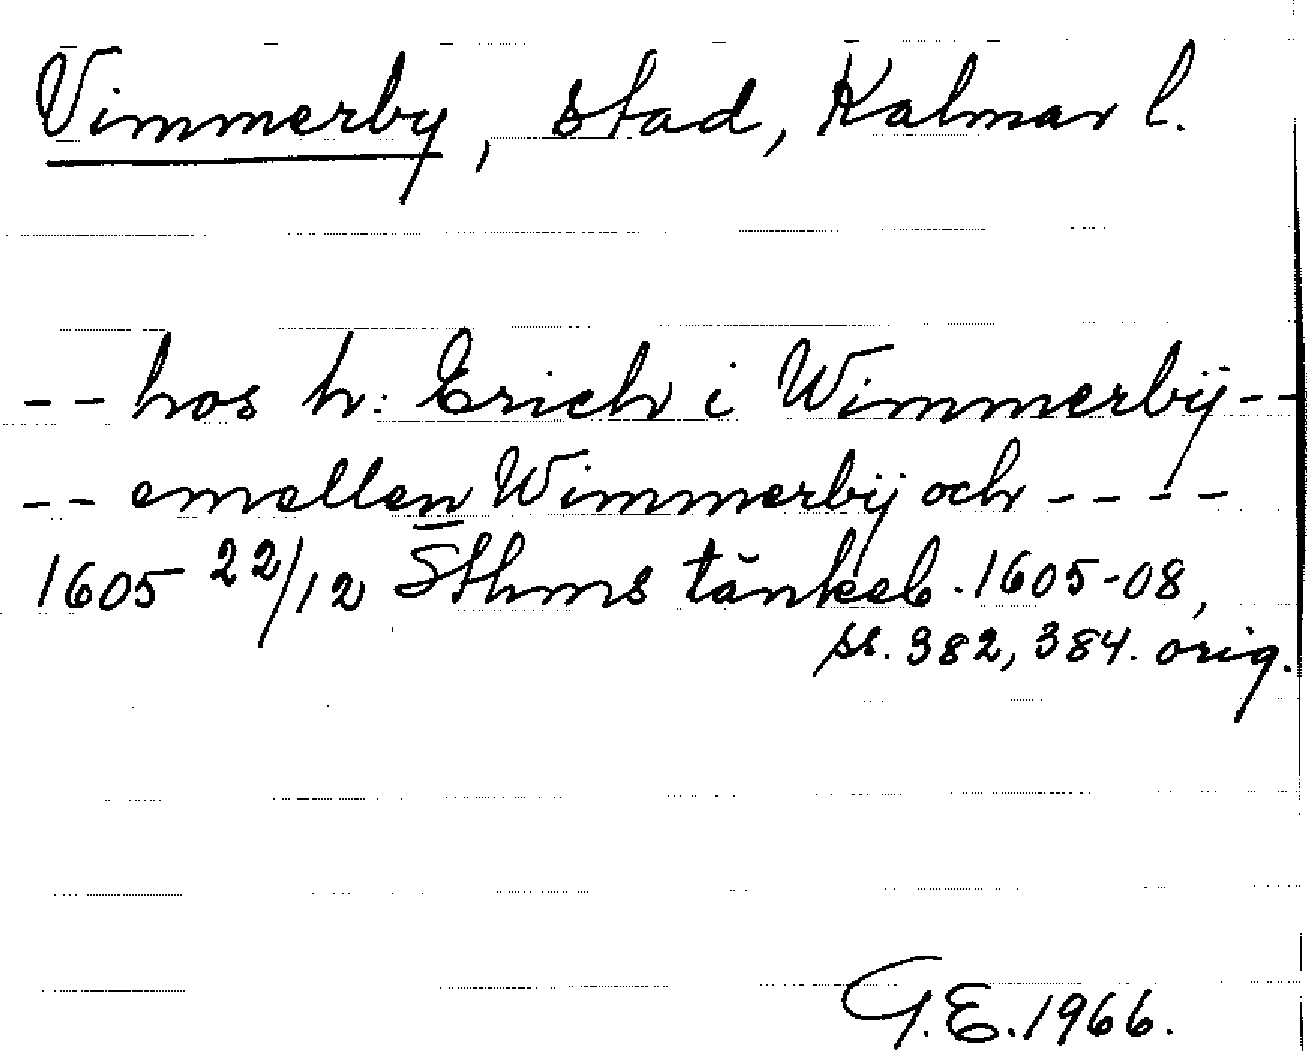 Vimmerby, stad, Kalmar l.
-- hos h: Erich i Wimmerbÿ --
-- emellen Wimmerbÿ och ----
1605 22/12 Sthms tänkeb. 1605-08,
ss. 382, 384. orig.
G.E. 1966.